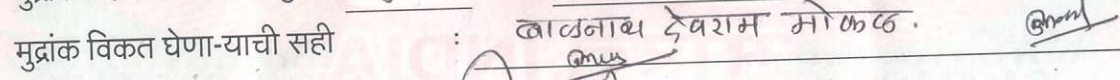 मुद्रांक विकत घेणा-याची सही : बाळनाथ देवराम मोकळ.